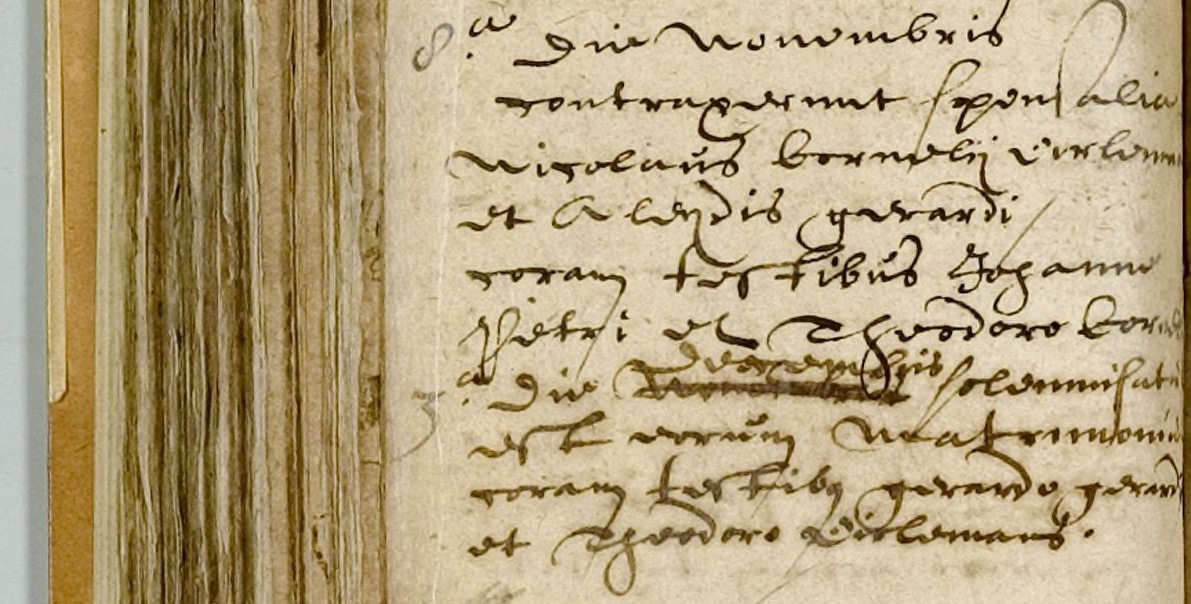 8.a Die Novembris
contraxerunt sponsalia
Nicolaus Cornelij
et Aleydis gerardi
coram testibus Johanne
Petri et Theodoro Cor
3.a Die Decembris solemnisatu
est eorum Matrimoniu
coram testibq gerardo gerard
et Theodoro Dirlemans.